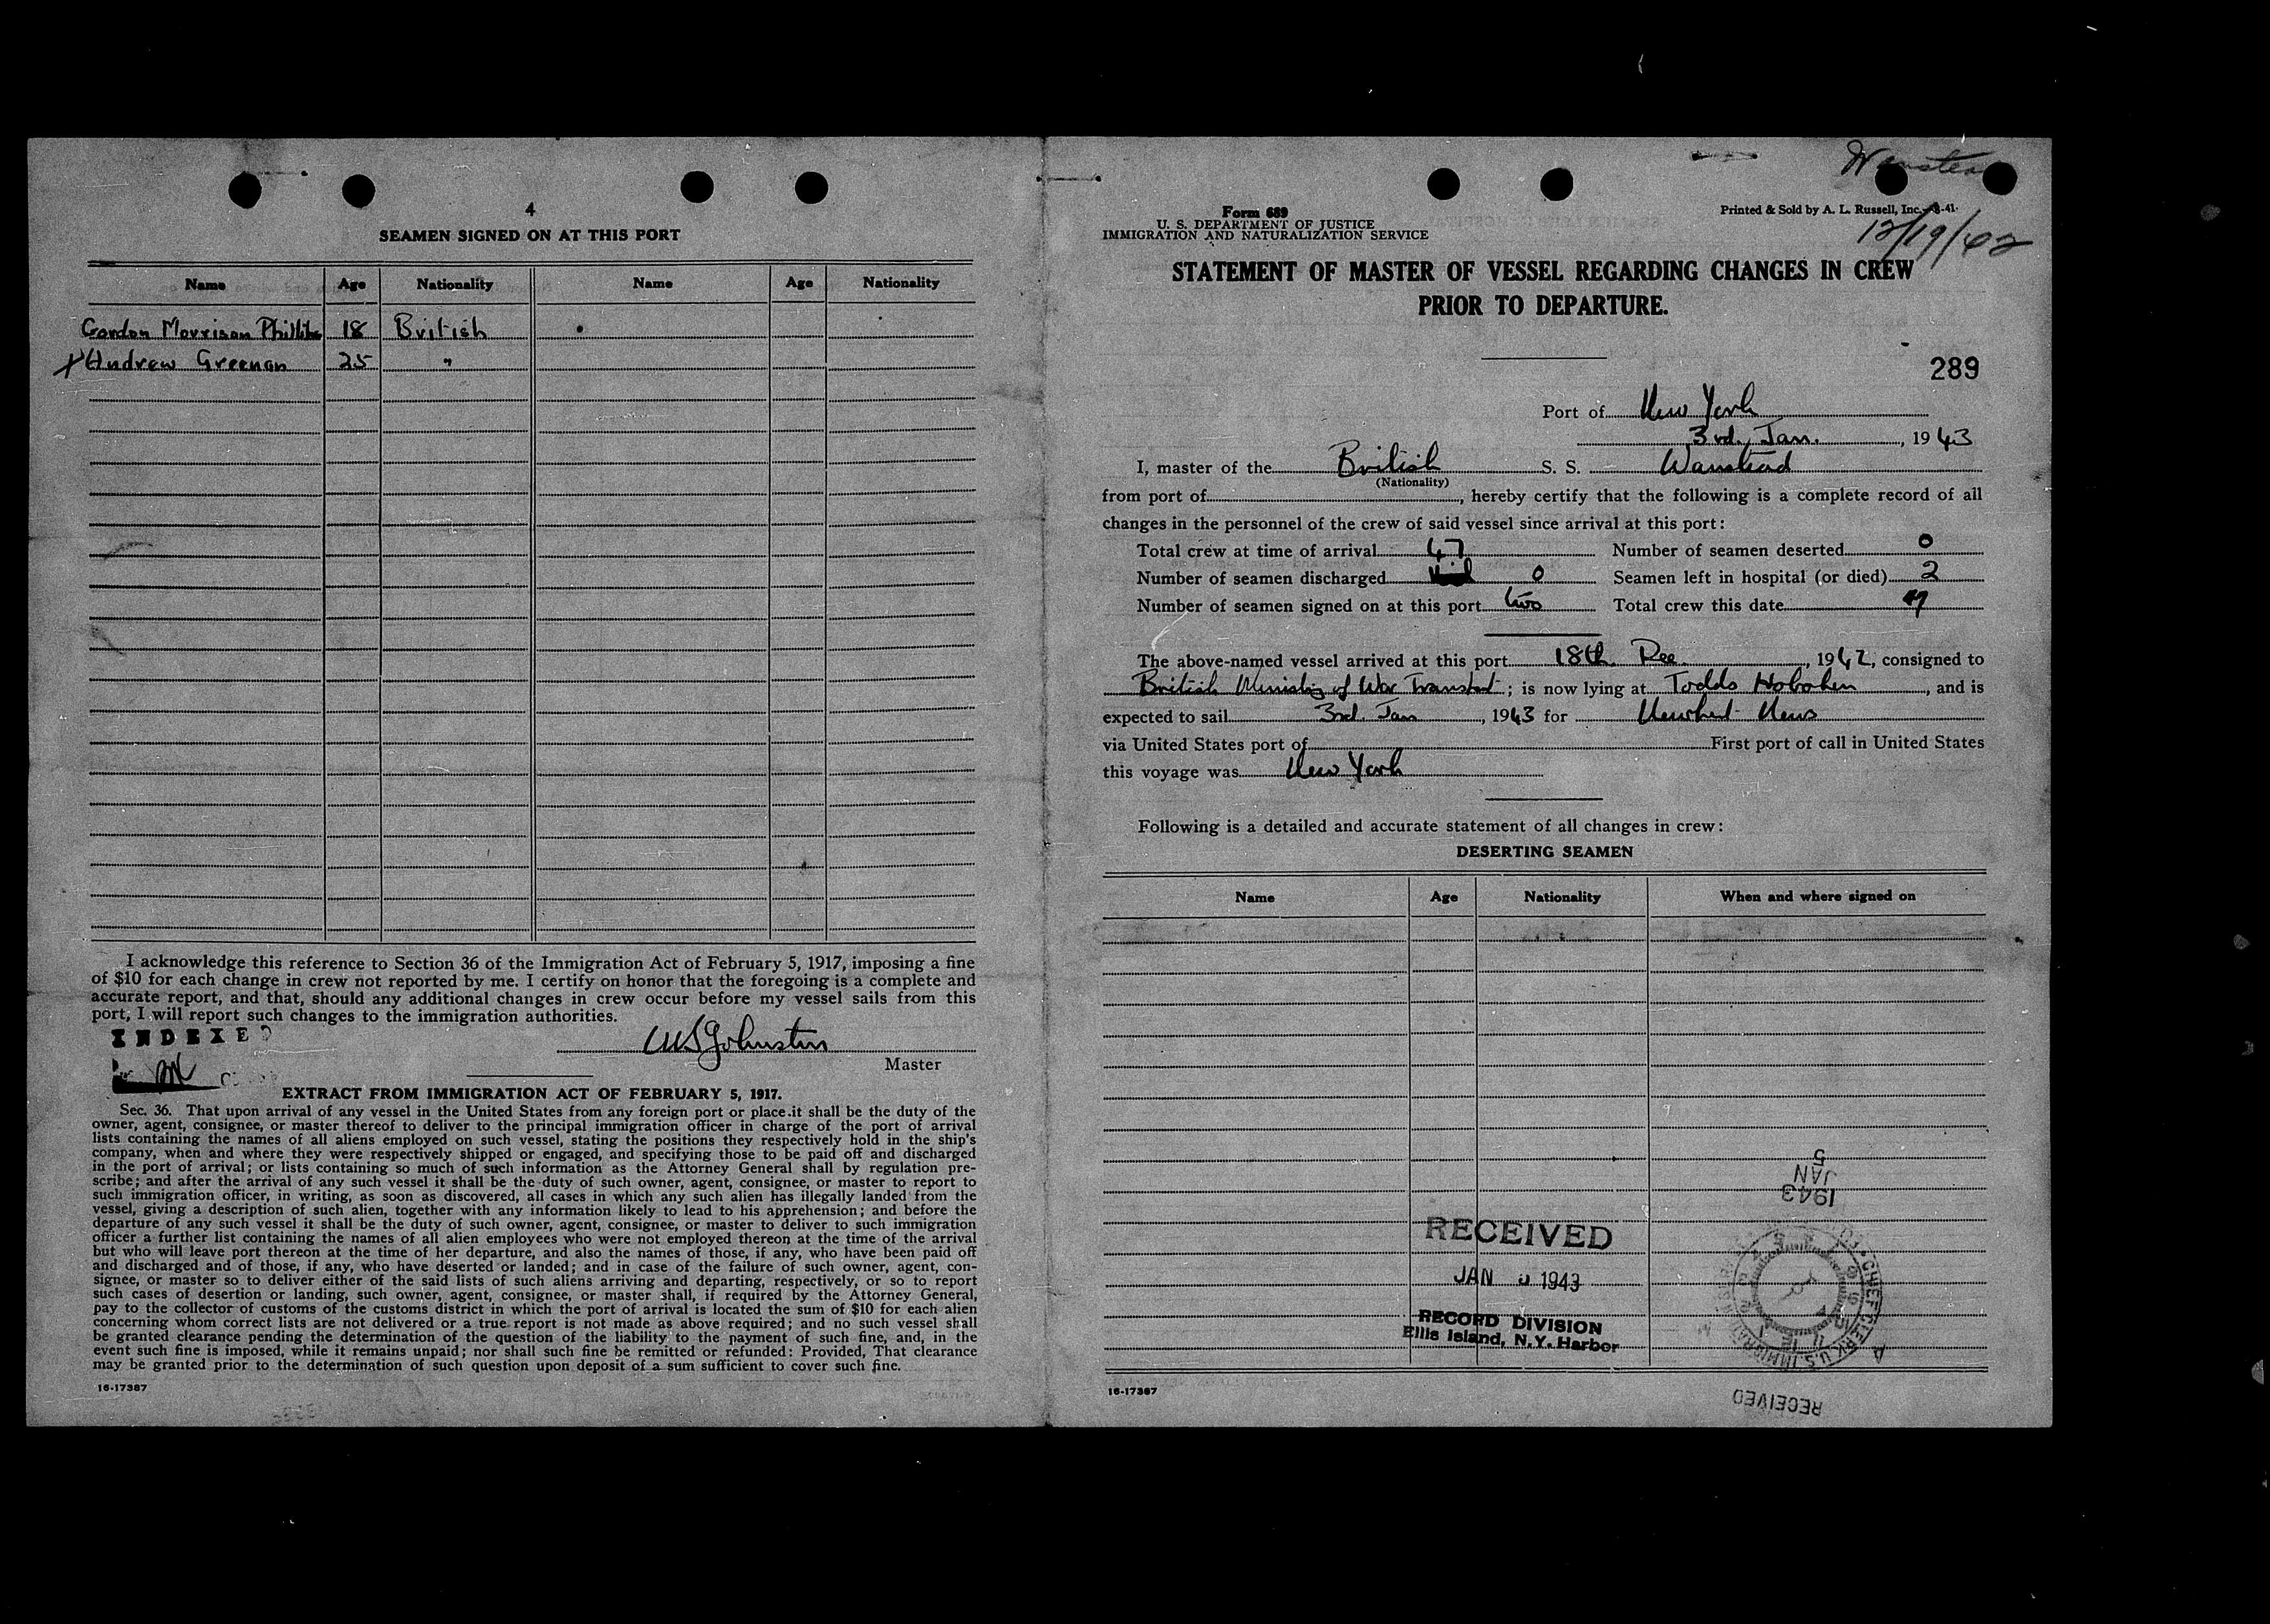 4
SEAMEN SIGNED ON AT THIS PORT
Name Age Nationality Name Age Nationality
Gordon Morrison 18 British
Andrew Greenan 25 "
I acknowledge this reference to Section 36 of the Immigration Act of February 5, 1917, imposing a fine
of $10 for each change in crew not reported by me. I certify on honor that the foregoing is a complete and
accurate report, and that, should any additional changes in crew occur before my vessel sails from this
port, I will report such changes to the immigration authorities.
INDEXED
Johnston
Master
EXTRACT FROM IMMIGRATION ACT OF FEBRUARY 5, 1917.
Sec. 36. That upon arrival of any vessel in the United States from any foreign port or place it shall be the duty of the
owner, agent, consignee, or master thereof to deliver to the principal immigration officer in charge of the port of arrival
lists containing the names of all aliens employed on such vessel, stating the positions they respectively hold in the ship's
company, when and where they were respectively shipped or engaged, and specifying those to be paid off and discharged
in the port of arrival; or lists containing so much of such information as the Attorney General shall by regulation pre-
scribe; and after the arrival of any such vessel it shall be the duty of such owner, agent, consignee, or master to report to
such immigration officer, in writing, as soon as discovered, all cases in which any such alien has illegally landed from the
vessel, giving a description of such alien, together with any information likely to lead to his apprehension; and before the
departure of any such vessel it shall be the duty of such owner, agent, consignee, or master to deliver to such immigration
officer a further list containing the names of all alien employees who were not employed thereon at the time of the arrival
but who will leave port thereon at the time of her departure, and also the names of those, if any, who have been paid off
and discharged and of those, if any, who have deserted or landed; and in case of the failure of such owner, agent, con-
signee, or master so to deliver either of the said lists of such aliens arriving and departing, respectively, or so to report
such cases of desertion or landing, such owner, agent, consignee, or master shall, if required by the Attorney General,
pay to the collector of customs of the customs district in which the port of arrival is located the sum of $10 for each alien
concerning whom correct lists are not delivered or a true report is not made as above required; and no such vessel shall
be granted clearance pending the determination of the question of the liability to the payment of such fine, and, in the
event such fine is imposed, while it remains unpaid; nor shall such fine be remitted or refunded: Provided, That clearance
may be granted prior to the determination of such question upon deposit of a sum sufficient to cover such fine.
16-17387
Wanstead
Form 689
Printed & Sold by A. L. Russell, Inc.-8-41
U. S. DEPARTMENT OF JUSTICE
IMMIGRATION AND NATURALIZATION SERVICE
12/19/42
STATEMENT OF MASTER OF VESSEL REGARDING CHANGES IN CREW
PRIOR TO DEPARTURE.
289
Port of New York
3rd. Jan. , 1943
I, master of the British S. S. Wanstead
(Nationality)
from port of , hereby certify that the following is a complete record of all
changes in the personnel of the crew of said vessel since arrival at this port:
Total crew at time of arrival 47 Number of seamen deserted 0
Number of seamen discharged 0 Seamen left in hospital (or died) 2
Number of seamen signed on at this port two Total crew this date 47
The above-named vessel arrived at this port 18th Dec. , 1942, consigned to
British Ministry of War Transport ; is now lying at Todds Hoboken , and is
expected to sail 3rd. Jan , 1943 for Newport News
via United States port of First port of call in United States
this voyage was New York
Following is a detailed and accurate statement of all changes in crew:
DESERTING SEAMEN
Name Age Nationality When and where signed on
5
JAN
1943
RECEIVED
JAN 1943
RECORD DIVISION
Ellis Island, N.Y. Harbor
CHIEF CLERK U.S. IMMIGRATION
16-17387
RECEIVED